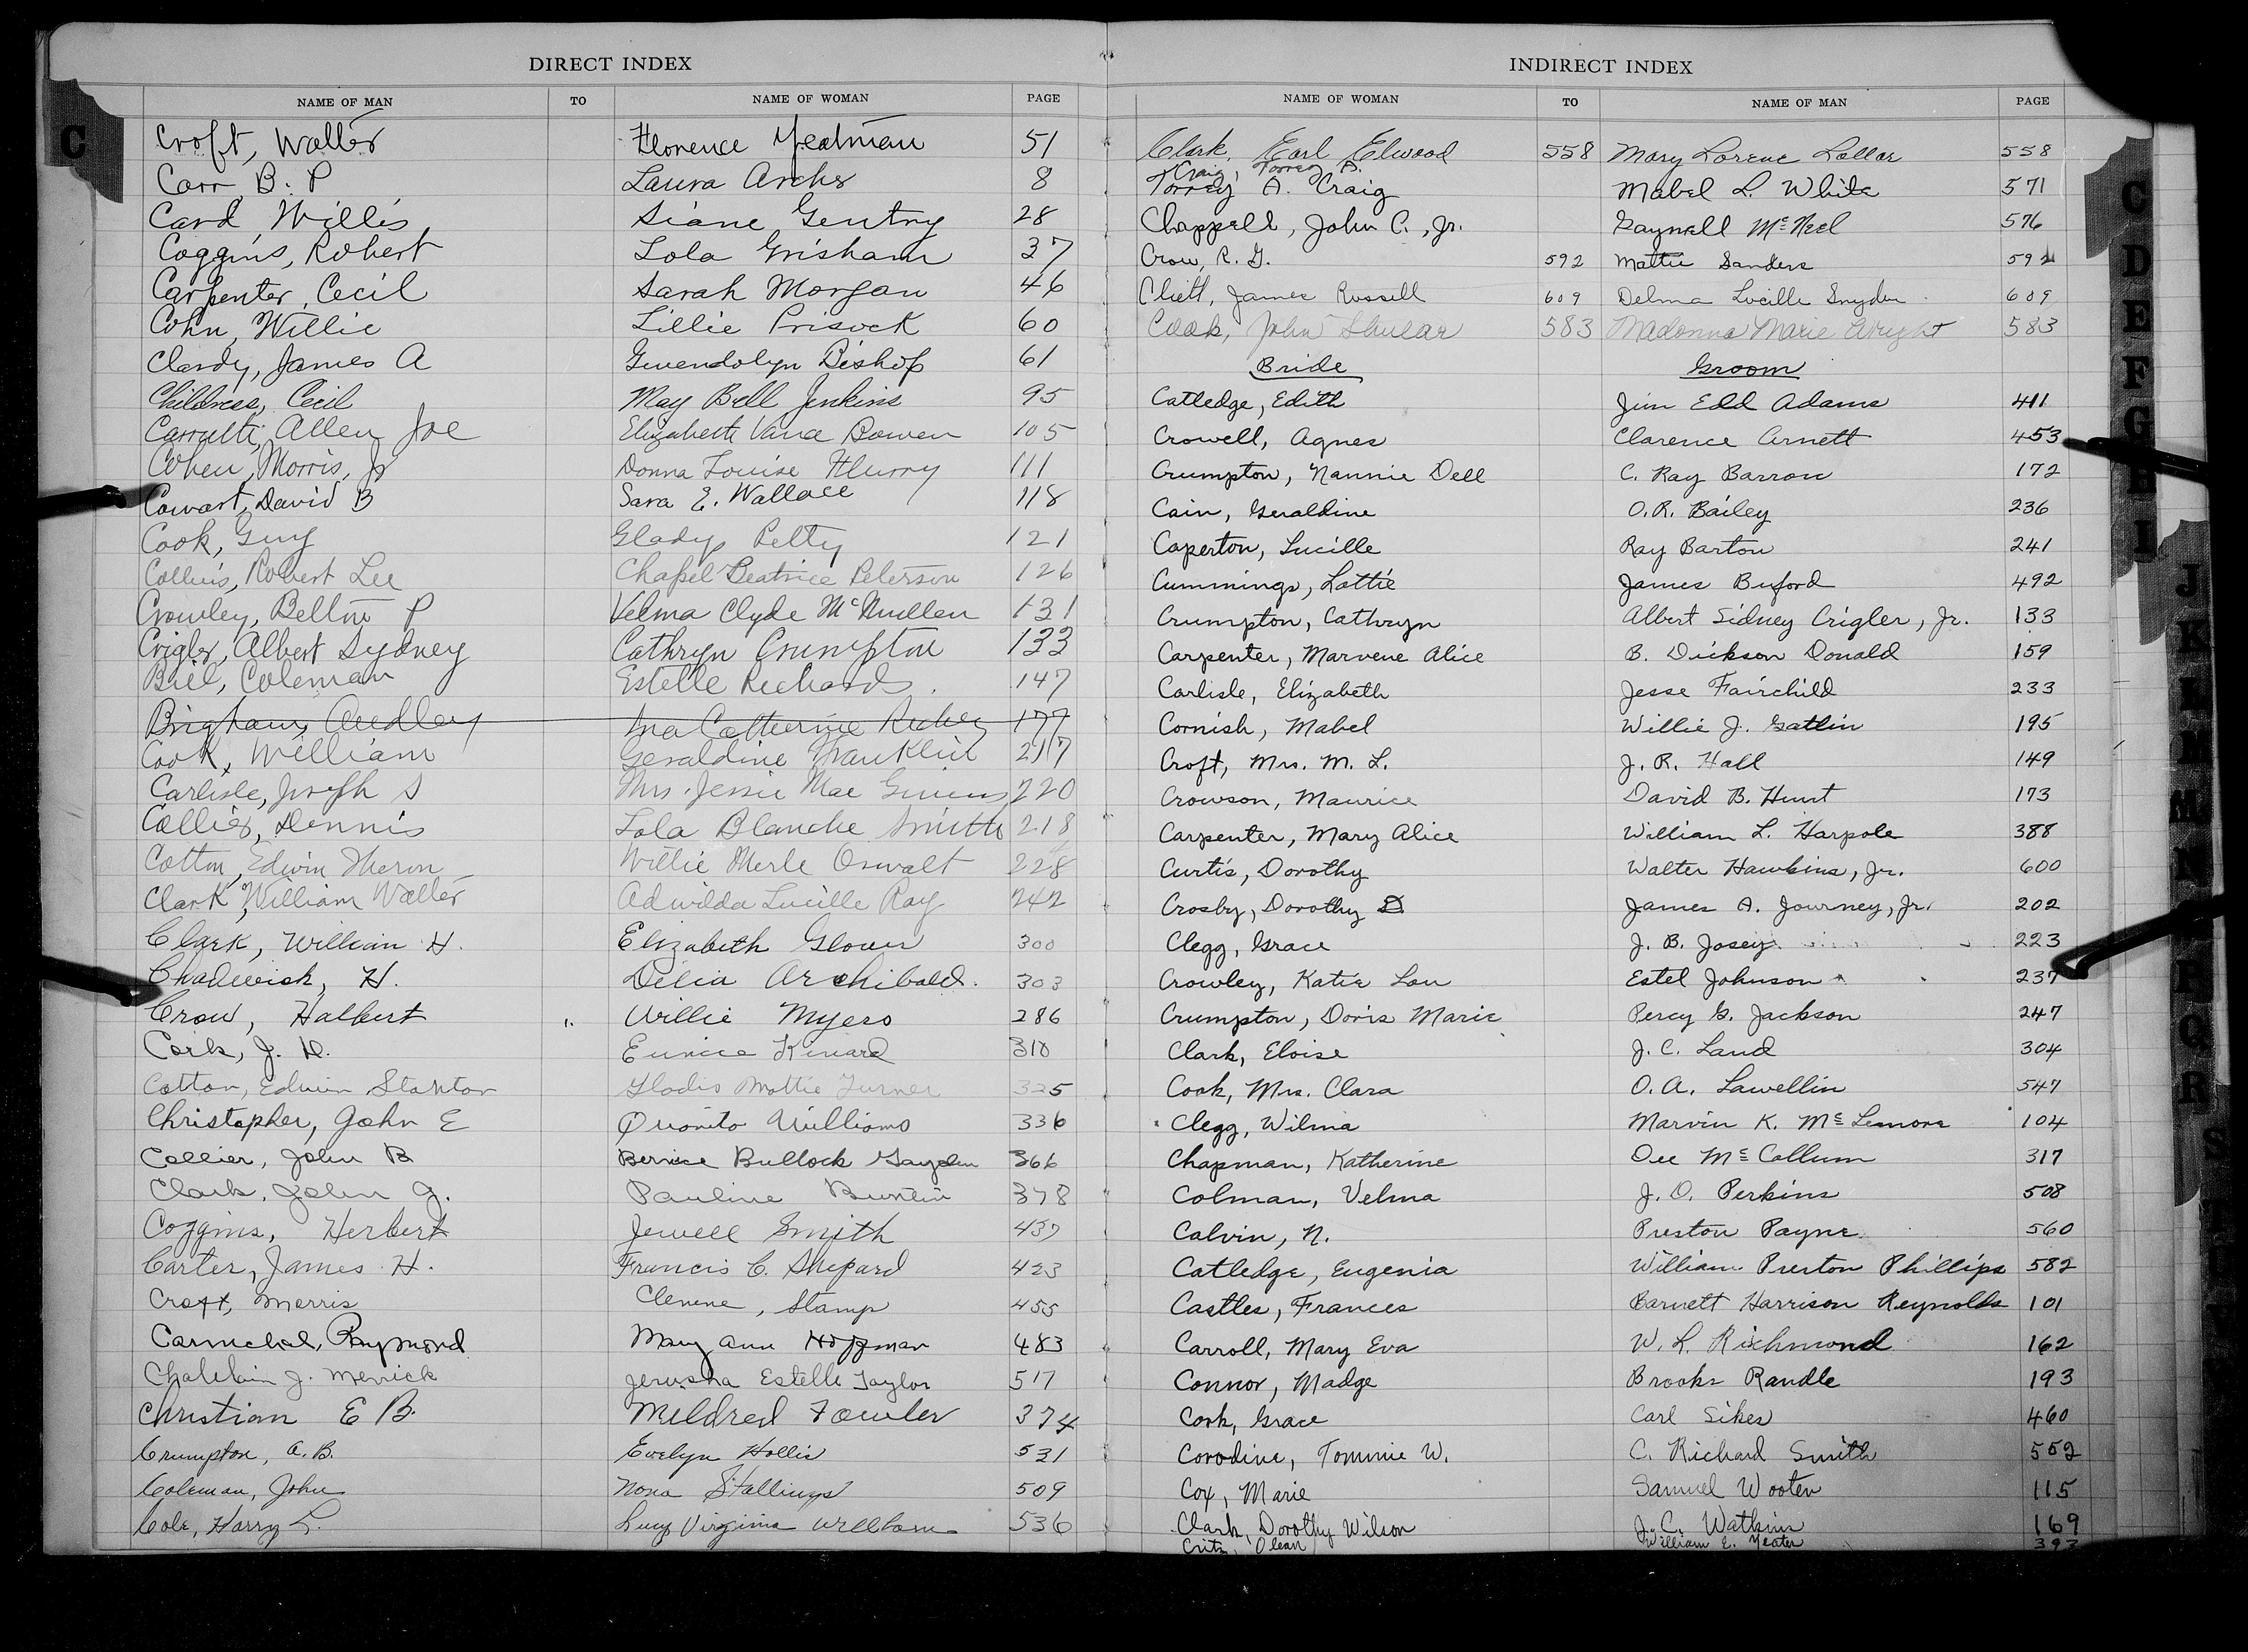 DIRECT INDEX
NAME OF MAN TO NAME OF WOMAN PAGE
C
Croft, Walter Florence Yeatman 51
Carr, B. P Laura Archer 8
Card, Willis Siane Gentry 28
Coggins, Robert Lola Grisham 37
Carpenter, Cecil Sarah Morgan 46
Cohn, Willie Lillie Prisock 60
Clardy, James A Gwendolyn Bishop 61
Childress, Cecil May Bell Jenkins 95
Allen Joe Elizabeth Vana Bowen 105
Cohen, Morris, Jr Donna Louise Flurry 111
Cowart, David B Sara E. Wallace 118
Cook, Guy Gladys Petty 121
Collins, Robert Lee Chapel Beatrice Peterson 126
Crowley, Belton P Velma Clyde McMullen 131
Crigler, Albert Sydney Cathryn Crumpton 133
Biel, Coleman Estelle Richards 147
Brigham, Audley Ina Catherine Richey 177
Cook, William Geraldine Franklin 217
Carlisle, Joseph S Mrs. Jessie Mae Givens 220
Collier, Dennis Lola Blanche Smith 218
Cotton, Edwin Theron Willie Merle Oswalt 228
Clark, William Walter Adwilda Lucille Ray 242
Clark, William H. Elizabeth Glover 300
Chadwick, H. Delia Archibald. 303
Crow, Halbert Willie Myers 286
Cork, J. D. Eunice Kinard 310
Cotton, Edwin Stanton Gladis Mattie Turner 325
Christopher, John E Quonito Williams 336
Collier, John B Bernice Bullock Gayden 366
Clark, John J. Pauline Buntin 378
Coggins, Herbert Jewell Smith 437
Carter, James H. Francis C. Shepard 423
Croft, Morris Clenene, Stamp 455
Carmichal, Raymond Mary Ann Hoffman 483
Chatelain J. Merrick Jerusha Estelle Taylor 517
Christian E B. Mildred Fowler 374
Crumpton, A. B. Evelyn Hollis 531
Coleman, John Nona Stallings 509
Cole, Harry L. Lucy Virginia Williams 536
INDIRECT INDEX
NAME OF WOMAN TO NAME OF MAN PAGE
Clark, Earl Elwood 558 Mary Lorene Lollar 558
Craig, Torrey A.
Torrey A. Craig Mabel L. White 571
Chappell, John C., Jr. Raynell McNeel 576
Crow, R. G. 592 Mattie Sanders 592
Cliett, James Russell 609 Delma Lucille Snyder 609
Cook, John Shular 583 Madonna Marie Wright 583
Bride Groom
Catledge, Edith Jim Edd Adams 411
Crowell, Agnes Clarence Arnett 453
Crumpton, Nannie Dell C. Ray Barron 172
Cain, Geraldine O. R. Bailey 236
Caperton, Lucille Ray Barton 241
Cummings, Lottie James Buford 492
Crumpton, Cathryn Albert Sidney Crigler, Jr. 133
Carpenter, Marvene Alice B. Dickson Donald 159
Carlisle, Elizabeth Jesse Fairchild 233
Cornish, Mabel Willie J. Gatlin 195
Croft, Mrs. M. L. J. R. Hall 149
Crowson, Maurice David B. Hunt 173
Carpenter, Mary Alice William L. Harpole 388
Curtis, Dorothy Walter Hawkins, Jr. 600
Crosby, Dorothy D. James A. Journey, Jr. 202
Clegg, Grace J. B. Josey 223
Crowley, Katie Lou Estel Johnson 237
Crumpton, Doris Marie Percy G. Jackson 247
Clark, Eloise J. C. Land 304
Cook, Mrs. Clara O. A. Lawellin 547
Clegg, Wilma Marvin K. McLemore 104
Chapman, Katherine Dee McCollum 317
Colman, Velma J. O. Perkins 508
Calvin, N. Preston Payne 560
Catledge, Eugenia William Preston Phillips 582
Castles, Frances Barnett Harrison Reynolds 101
Carroll, Mary Eva W. L. Richmond 162
Connor, Madge Brooks Randle 193
Cork, Grace Carl Sikes 460
Corodine, Tommie W. C. Richard Smith 552
Cox, Marie Samuel Wooten 115
Clark, Dorothy Wilson J. C. Watkins 169
Critz, Olean William E. Yeater 393
C
D
E
F
G
H
I
J
K
L
M
N
P
Q
R
S